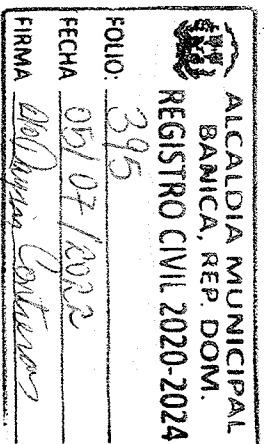 ALCALDIA MUNICIPAL
BANICA, REP. DOM.
REGISTRO CIVIL 2020-2024
FOLIO: 395
FECHA 05/07/2022
FIRMA Contreras